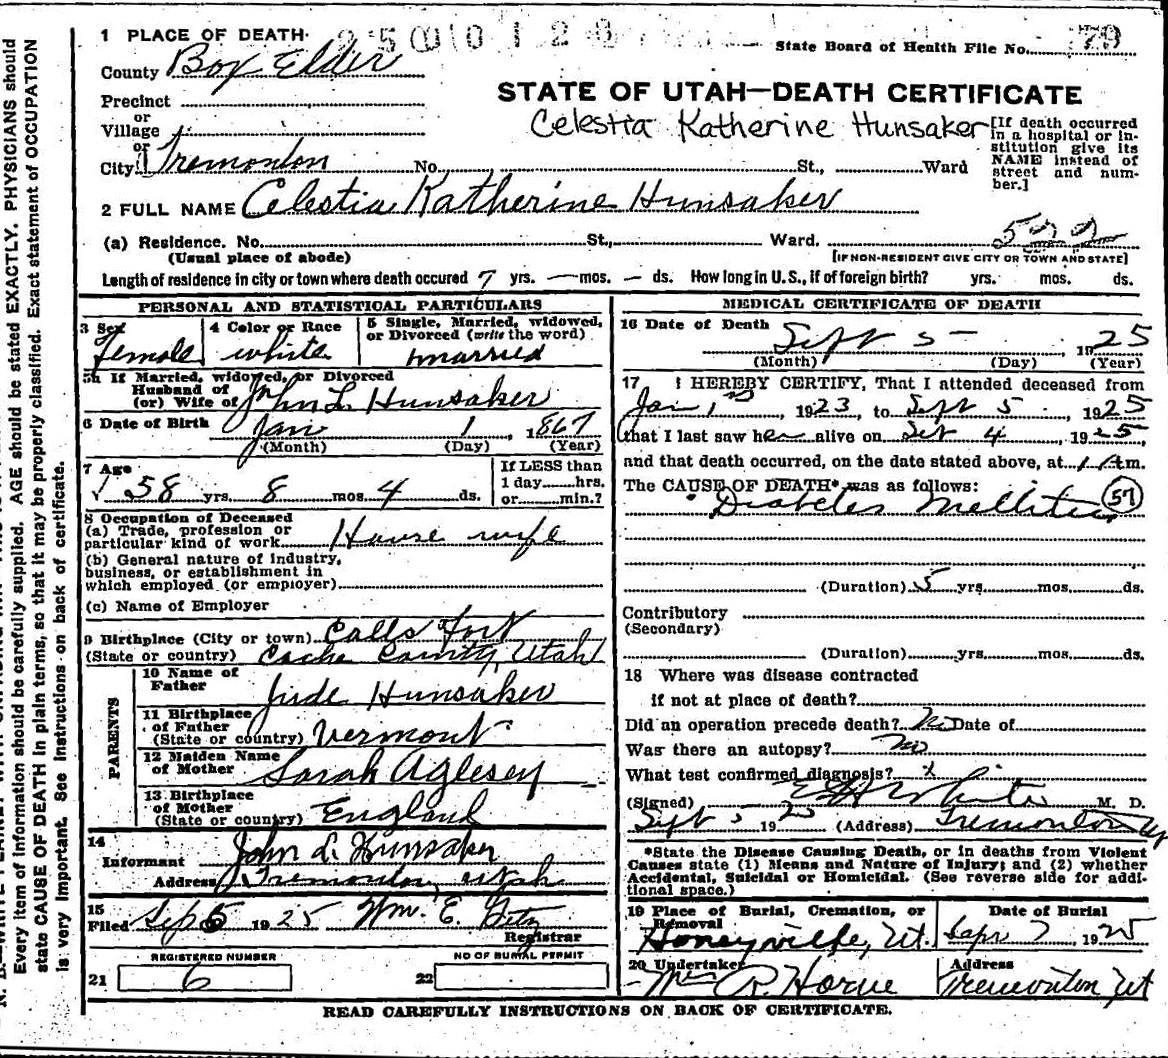 1 PLACE OF DEATH
State Board of Health File No. 79
County Box Elder
STATE OF UTAH—DEATH CERTIFICATE
Precinct
or
Village
Celestia Katherine Hunsaker
[If death occurred in a hospital or institution give its NAME instead of street and number.]
or
City Tremonton No. St., Ward
2 FULL NAME Celestia Katherine Hunsaker
(a) Residence. No. St., Ward.
(Usual place of abode) [IF NON-RESIDENT GIVE CITY OR TOWN AND STATE]
Length of residence in city or town where death occured 7 yrs. — mos. — ds. How long in U.S., if of foreign birth? yrs. mos. ds.
PERSONAL AND STATISTICAL PARTICULARS
3 Sex
Female
4 Color or Race
white
5 Single, Married, widowed, or Divorced (write the word)
married
5a If Married, widowed, or Divorced
Husband of
(or) Wife of John L. Hunsaker
6 Date of Birth Jan 1, 1867
(Month) (Day) (Year)
7 Age
58 yrs. 8 mos. 4 ds.
If LESS than
1 day hrs.
or min.?
8 Occupation of Deceased
(a) Trade, profession or
particular kind of work House wife
(b) General nature of industry,
business, or establishment in
which employed (or employer)
(c) Name of Employer
9 Birthplace (City or town) Calls Fort
(State or country) Cache County, Utah
PARENTS
10 Name of
Father Jude Hunsaker
11 Birthplace
of Father
(State or country) Vermont
12 Maiden Name
of Mother Sarah Aglesey
13 Birthplace
of Mother
(State or country) England
14
Informant John L. Hunsaker
Address Tremonton, Utah
15
Filed Sep 5 1925 Wm. E. Getz
Registrar
REGISTERED NUMBER
21 6
NO OF BURIAL PERMIT
22
MEDICAL CERTIFICATE OF DEATH
16 Date of Death
Sept 5 1925
(Month) (Day) (Year)
17 I HEREBY CERTIFY, That I attended deceased from
Jan 1st, 1923, to Sept 5, 1925
that I last saw her alive on Set 4, 1925,
and that death occurred, on the date stated above, at 1 A m.
The CAUSE OF DEATH* was as follows:
Diabetes Mellitus 57
(Duration) 5 yrs. mos. ds.
Contributory
(Secondary)
(Duration) yrs. mos. ds.
18 Where was disease contracted
if not at place of death?
Did an operation precede death? No Date of
Was there an autopsy? no
What test confirmed diagnosis?
(Signed) White M. D.
Sept 5 1925 (Address) Tremonton
*State the Disease Causing Death, or in deaths from Violent
Causes state (1) Means and Nature of Injury; and (2) whether
Accidental, Suicidal or Homicidal. (See reverse side for addi-
tional space.)
19 Place of Burial, Cremation, or
Removal
Honeyville, Ut.
Date of Burial
Sept 7, 1925
20 Undertaker
Wm R. Horne
Address
Tremonton Ut
READ CAREFULLY INSTRUCTIONS ON BACK OF CERTIFICATE.
Every item of information should be carefully supplied. AGE should be stated EXACTLY. PHYSICIANS should
state CAUSE OF DEATH in plain terms, so that it may be properly classified. Exact statement of OCCUPATION
is very important. See instructions on back of certificate.